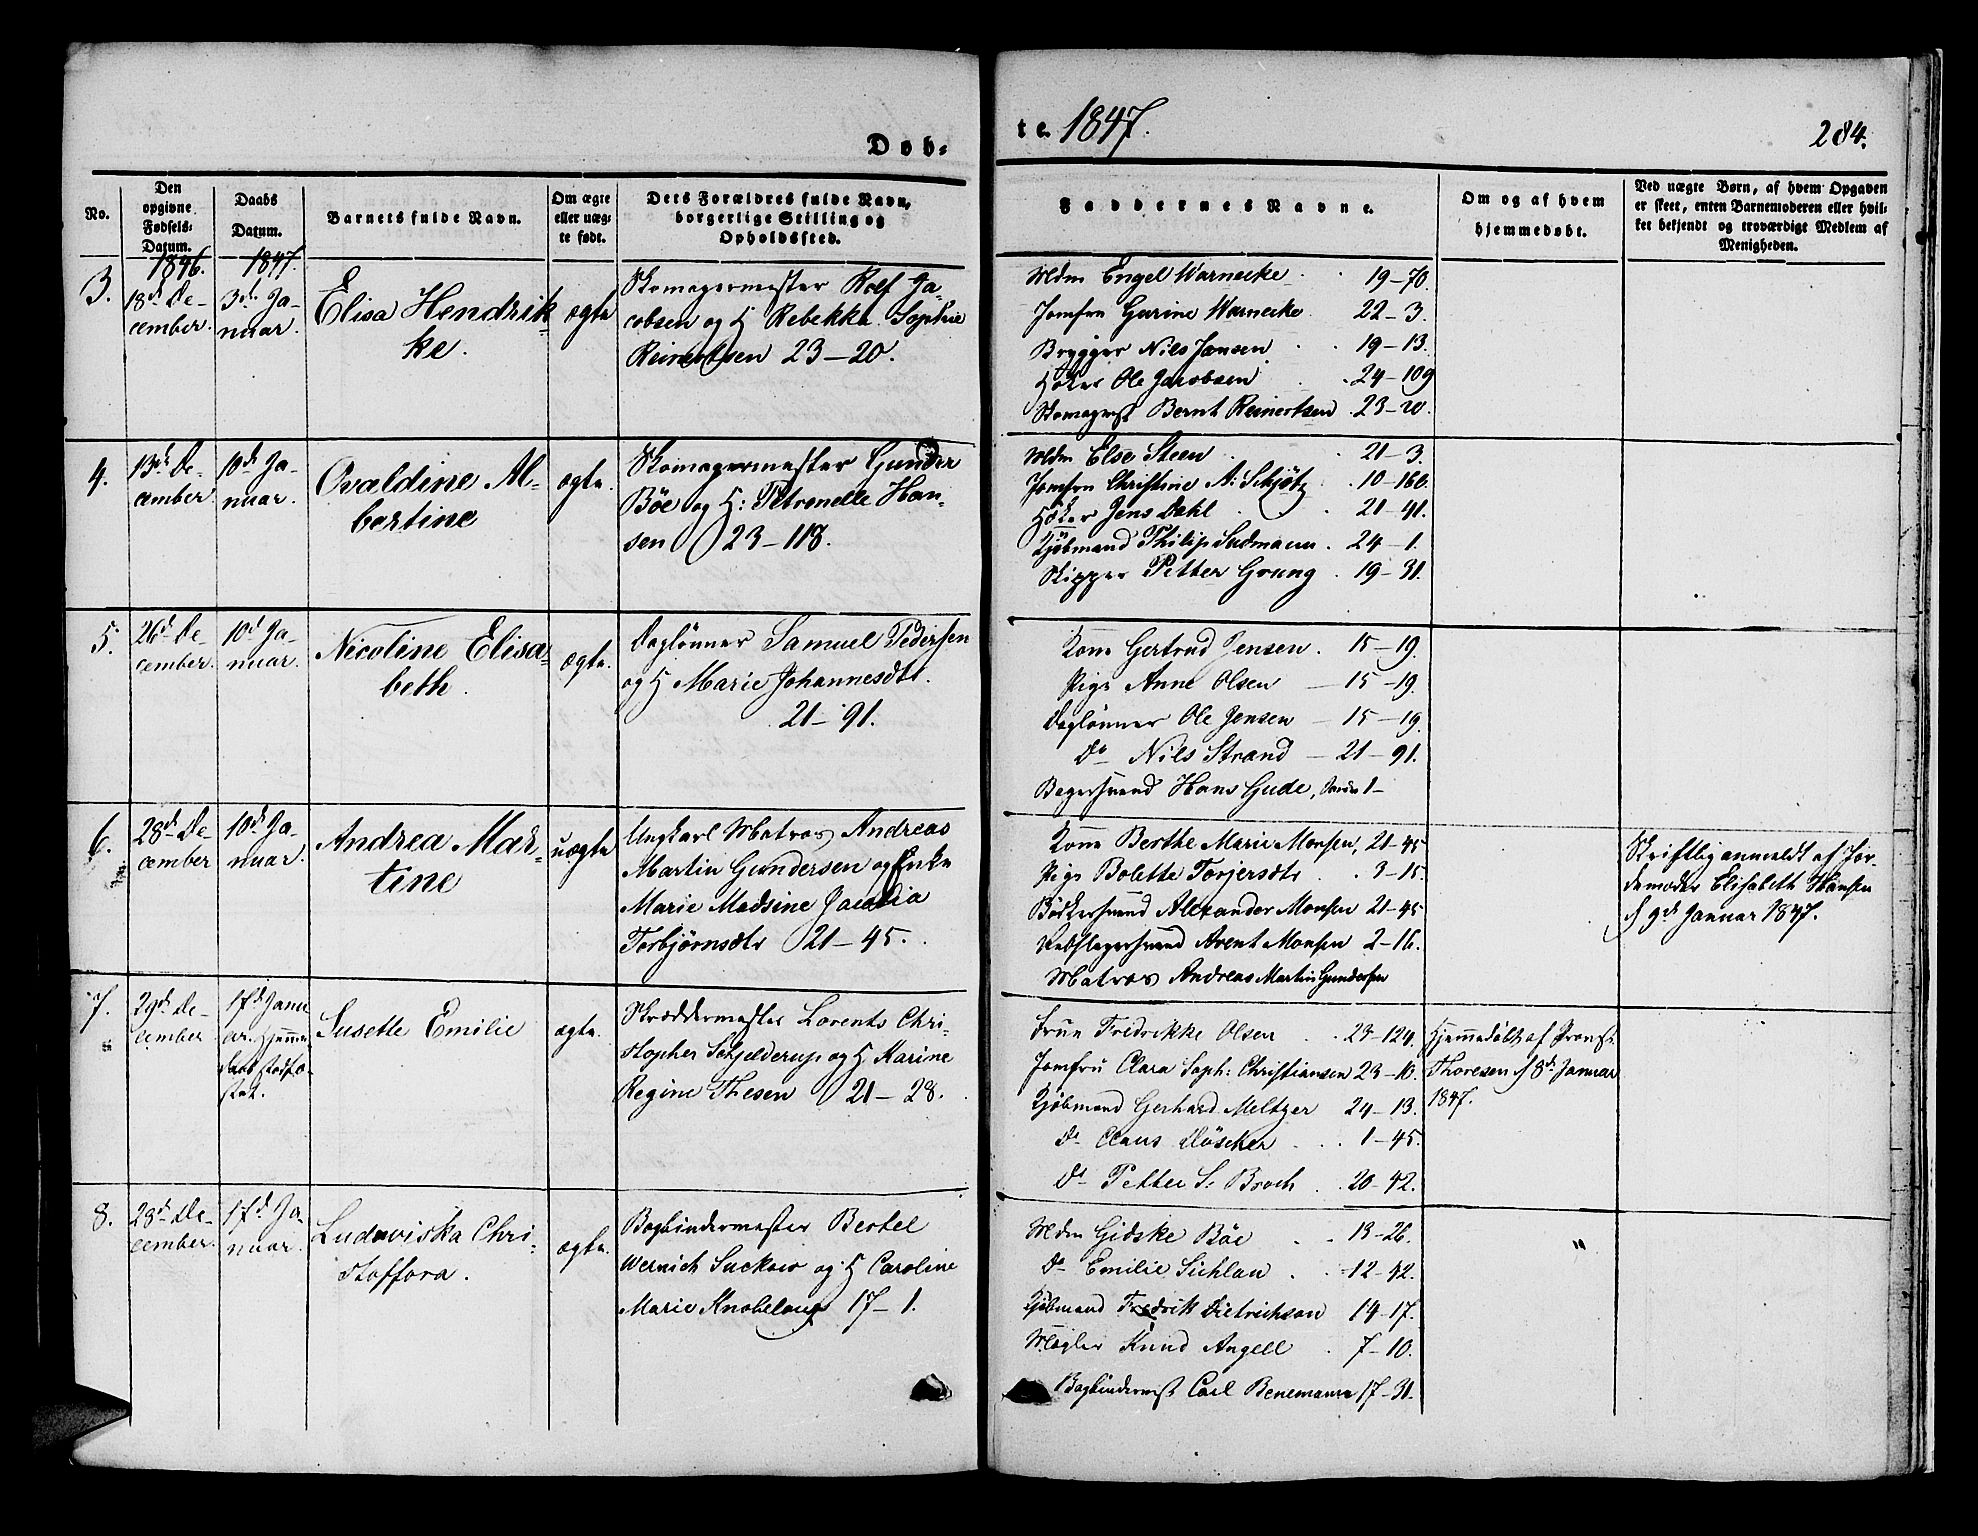 Døb-
te 1847.
284.
No.
Den opgivne Fødsels-Datum.
Daabs Datum.
Barnets fulde Navn.
Om ægte eller uæg-te født.
Dets Forældres fulde Navn, borgerlige Stilling og Opholdssted.
Faddernes Navne.
Om og af hvem hjemmedøbt.
Ved uægte Børn, af hvem Opgaven er skeet, enten Barnemoderen eller hvil-ket bekjendt og troværdigt Medlem af Menigheden.
1846.
1847.
3.
18de De-
cember.
3de Ja-
nuar.
Elisa Hendrik-
ke.
ægte
Skomagermester Rolf Ja-
cobsen og H Rebekka Sophie
Reinertsen 23-20.
Mdm Engel Warnecke. 19-70.
Jomfru Gurine Warnecke. 22-3.
Brygger Nils Jansen 19-13.
Høker Ole Jacobsen 24-109
Skomagermst Bernt Reinertsen 23-20.
4.
13de De-
cember
10de Ja-
nuar.
Ovaldine Al-
bertine
ægte.
Skomagermester Gunder
Bøe og H: Petronelle Han-
sen 23-118.
Mdm Else Steen 21-3.
Jomfru Christine A: Schjøtz 10-160.
Høker Jens Dahl 21-41.
Kjøbmand Philip Sudmann. 24-1.
Skipper Petter Grung 19-31.
5.
26d De-
cember.
10d Ja-
nuar.
Nicoline Elisa-
beth.
ægte.
Daglønner Samuel Pedersen
og H Marie Johannesdtr.
21-91.
Kone Gertrud Jensen. 15-19.
Pige Anne Olsen 15-19.
Daglønner Ole Jensen 15-19.
Do Nils Strand 21-91.
Bagersvend Hans Gude, 1-
6.
28de De-
cember
10de Ja-
nuar.
Andrea Mar-
tine
uægte
Ungkarl Matros Andreas
Martin Gundersen og Enke
Marie Madsine
Torbjørnsdtr 21-45.
Kone Berthe Marie Monsen, 21-45
Pige Bolette Torjersdtr 3-15.
Bødkersvend Alexander Monsen 21-45
Rebslagersvend Arent Monsen 2-16.
Matros Andreas Martin Gundersen
Skriftlig anmeldt af Jor-
demoder Elisabeth Hansen
d 9de Januar 1847.
7.
29de De-
cember
17de Janu
ar. Hjemme-
daab stadfæ-
stet.
Susette Emilie
ægte.
Skræddermester Lorents Chri-
stopher Schjelderup og H Karine
Regine Thesen 21-28.
Frue Fredrikke Olsen 23-124.
Jomfru Clara Soph: Christiansen 23-10.
Kjøbmand Gerhard Meltzer 24-13.
Do Claus Döscher 1-45.
Do Petter S. Broch 20-42.
Hjemmedøbt af Provst
Thoresen d 8de Januar
1847.
8.
28de De-
cember.
17d Ja-
nuar.
Ludoviska Chri-
stoffora.
ægte.
Bogbindermester Bertel
Wernich Suckow og H Caroline
Marie Knobelauch 17-1.
Mdm Gidske Bøe 13-26.
Do Emilie Sichlau 12-42.
Kjøbmand Fredrik Dietrichson 14-17.
Mægler Knud Angell 7-10.
Bogbindermst Carl Benemann 17-31.
"